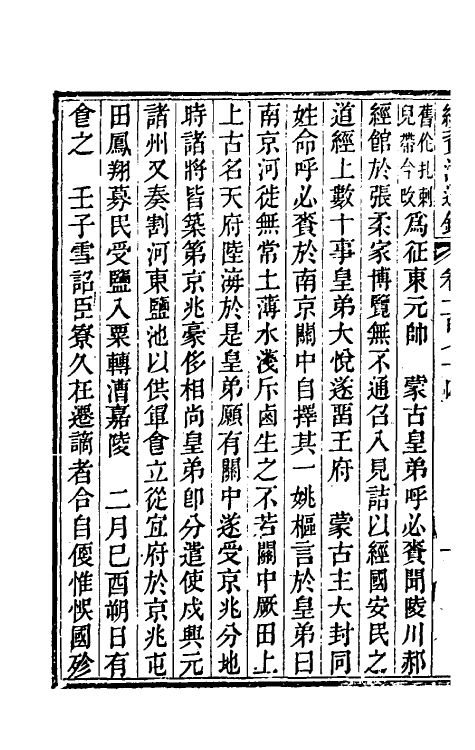 續資治通鑑 卷一百七十四
舊倫扎剌兒帶今改爲征東元帥　蒙古皇弟呼必賚聞陵川郝
經館於張柔家博覽無不通召入見詰以經國安民之
道經上數十事皇弟大悅遂畱王府　蒙古主大封同
姓命呼必賚於南京關中自擇其一姚樞言於皇弟曰
南京河徙無常土薄水淺斥鹵生之不若關中厥田上
上古名天府陸海於是皇弟願有關中遂受京兆分地
時諸將皆築第京兆豪侈相尚皇弟卽分遣使戍興元
諸州又奏割河東鹽池以供軍食立從宜府於京兆屯
田鳳翔募民受鹽入粟轉漕嘉陵　二月已酉朔日有
食之　壬子雪詔臣寮久在遷謫者合自優惟悞國殄